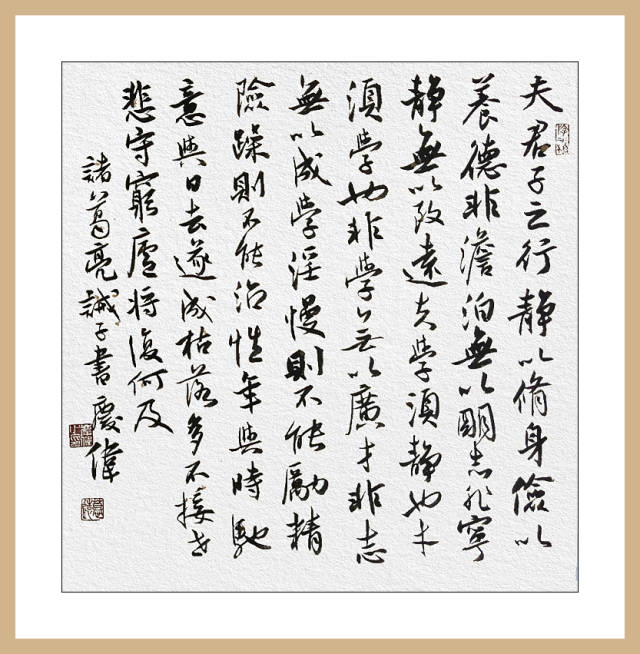 夫君子之行靜以脩身儉以
養德非澹泊無以明志非寧
靜無以致遠夫學須靜也才
須學也非學无以廣才非志
無以成學淫慢則不能勵精
險躁則不能治性年與時馳
意與日去遂成枯落多不接世
悲守窮廬將復何及
諸葛亮誡子書 慶偉